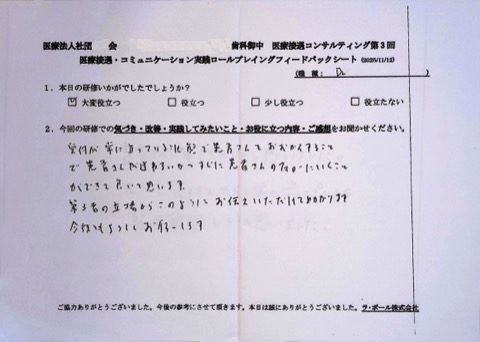 医療法人社団 会 歯科御中 医療接遇コンサルティング第3回
医療接遇・コミュニケーション実践ロールプレイングフィードバックシート (2025/11/12)
(職 種： Dr )
1．本日の研修いかがでしたでしょうか？
☑ 大変役立つ □ 役立つ □ 少し役立つ □ 役立たない
2．今回の研修での気づき・改善・実践してみたいこと・お役に立つ内容・ご感想をお聞かせください。
受付が常に立っている状態で患者さんをおむかえすること
で患者さんが
すぐに患者さんの
ができて良いと思います
第3者の立場からこのようにお伝えいただけて助かります
今後もよろしくお願いします
ご協力ありがとうございました。今後の参考にさせて頂きます。本日は誠にありがとうございました。ラ・ポール株式会社